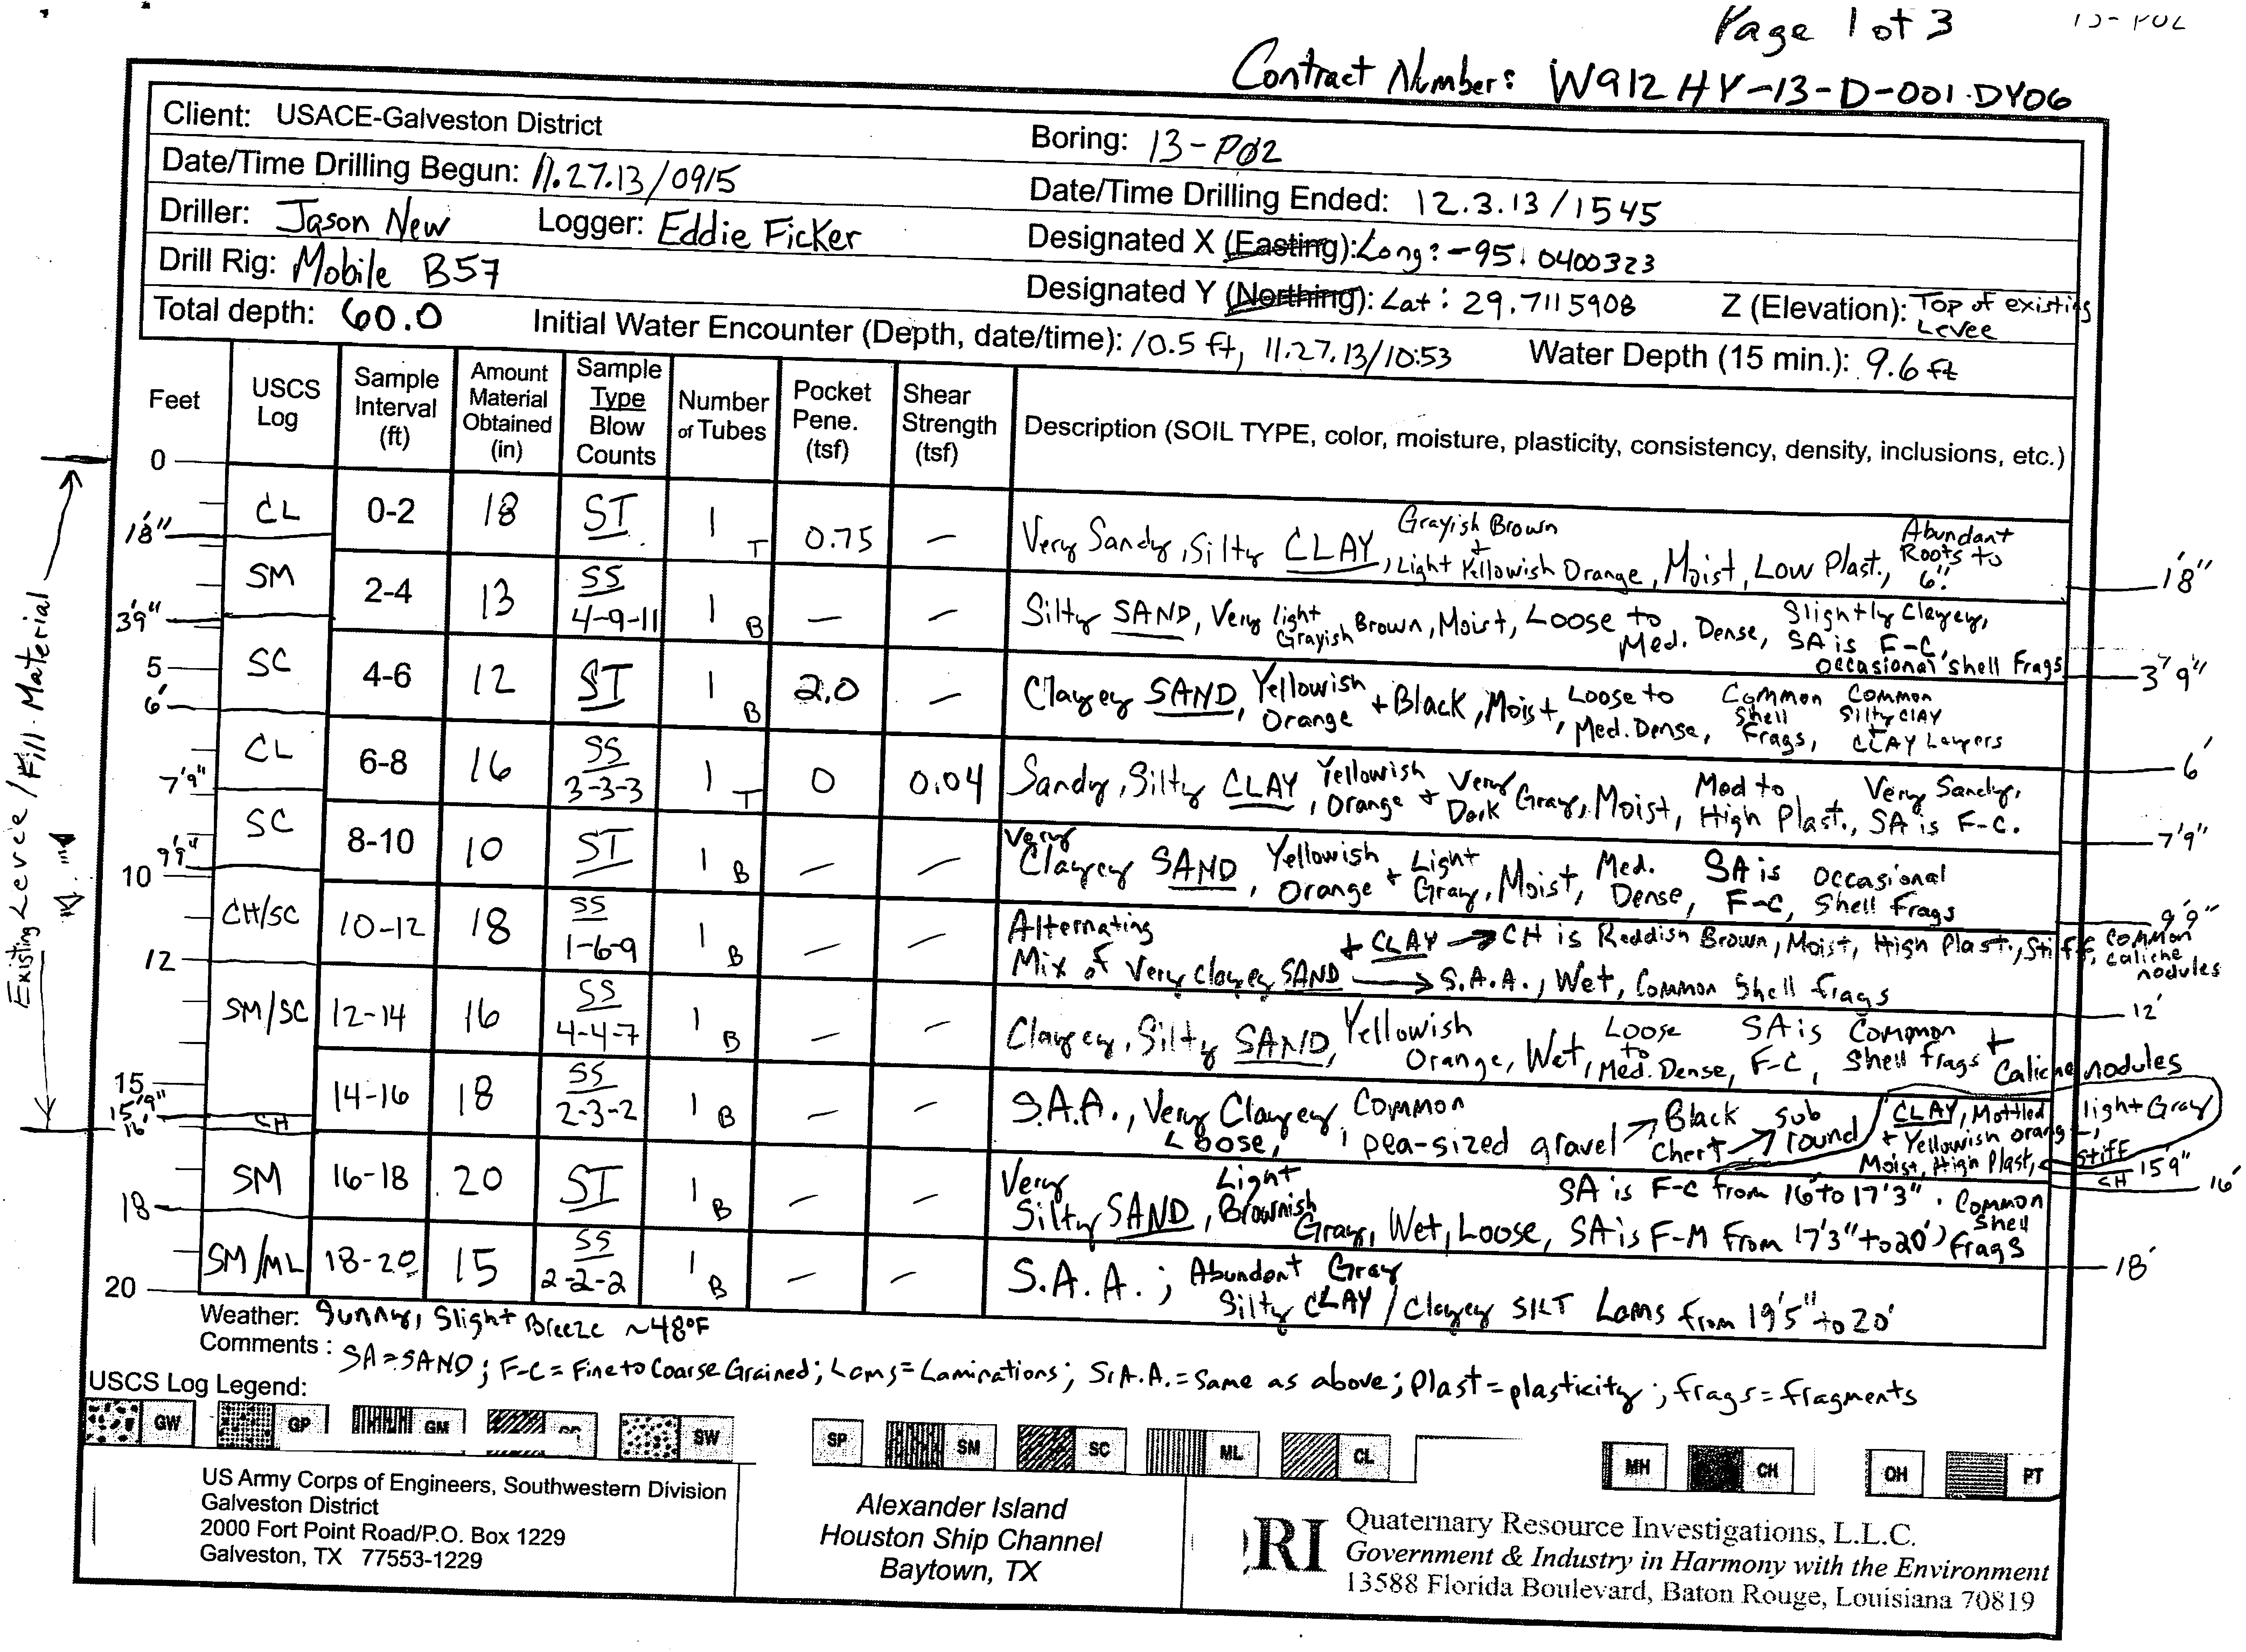 Page 1 of 3
13-P02
Contract Number: W912HY-13-D-001.DY06
Client: USACE-Galveston District
Boring: 13-PØ2
Date/Time Drilling Begun: 11.27.13/0915
Date/Time Drilling Ended: 12.3.13/1545
Driller: Jason New Logger: Eddie Ficker
Designated X (Easting): Long: -95.0400323
Drill Rig: Mobile B57
Designated Y (Northing): Lat: 29.7115908 Z (Elevation): Top of existing Levee
Total depth: 60.0 Initial Water Encounter (Depth, date/time): 10.5 ft, 11.27.13/10:53 Water Depth (15 min.): 9.6 ft
Feet USCS Log Sample Interval (ft) Amount Material Obtained (in) Sample Type Blow Counts Number of Tubes Pocket Pene. (tsf) Shear Strength (tsf) Description (SOIL TYPE, color, moisture, plasticity, consistency, density, inclusions, etc.)
Existing Levee/Fill Material
0
CL 0-2 18 ST 1 T 0.75 — Very Sandy, Silty CLAY, Grayish Brown + Light Yellowish Orange, Moist, Low Plast., Abundant Roots to 6".
1'8" 1'8"
SM 2-4 13 SS 4-9-11 1 B — — Silty SAND, Very light Grayish Brown, Moist, Loose to Med. Dense, Slightly Clayey, SA is F-C, occasional shell Frags
3'9" 3'9"
5
SC 4-6 12 ST 1 B 2.0 — Clayey SAND, Yellowish Orange + Black, Moist, Loose to Med. Dense, Common Shell Frags, Common Silty CLAY CLAY Layers
6' 6'
CL 6-8 16 SS 3-3-3 1 T 0 0.04 Sandy, Silty CLAY, Yellowish Orange + Very Dark Gray, Moist, Med to High Plast., Very Sandy, SA is F-C.
7'9" 7'9"
SC 8-10 10 ST 1 B — — Very Clayey SAND, Yellowish Orange + Light Gray, Moist, Med. Dense, SA is F-C, Occasional Shell Frags
9'9" 9'9"
10
CH/SC 10-12 18 SS 1-6-9 1 B — — Alternating Mix of Very Clayey SAND + CLAY → CH is Reddish Brown, Moist, High Plast., Stiff, Common Caliche nodules
→ S.A.A., Wet, Common Shell frags
12 12'
SM/SC 12-14 16 SS 4-4-7 1 B — — Clayey, Silty SAND, Yellowish Orange, Wet, Loose to Med. Dense, SA is F-C, Common Shell frags + Caliche nodules
15
14-16 18 SS 2-3-2 1 B — — S.A.A., Very Clayey, Loose, Common pea-sized gravel → Black Chert → sub round
15'9" CH CLAY, Mottled light Gray + Yellowish orange, Moist, High Plast, Stiff 15'9"
16' CH 16'
SM 16-18 20 ST 1 B — — Very Silty SAND, Light Brownish Gray, Wet, Loose, SA is F-C from 16' to 17'3". SA is F-M from 17'3" to 20') Common Shell frags
18 18'
SM/ML 18-20 15 SS 2-2-2 1 B — — S.A.A.; Abundant Gray Silty CLAY/Clayey SILT Lams from 19'5" to 20'
20
Weather: Sunny, Slight Breeze ~48°F
Comments: SA=SAND; F-C = Fine to Coarse Grained; Lams=Laminations; S.A.A.=Same as above; Plast=plasticity; frags=fragments
USCS Log Legend:
GW GP GM SW SP SM SC ML CL MH CH OH PT
US Army Corps of Engineers, Southwestern Division
Galveston District
2000 Fort Point Road/P.O. Box 1229
Galveston, TX 77553-1229
Alexander Island
Houston Ship Channel
Baytown, TX
RI
Quaternary Resource Investigations, L.L.C.
Government & Industry in Harmony with the Environment
13588 Florida Boulevard, Baton Rouge, Louisiana 70819